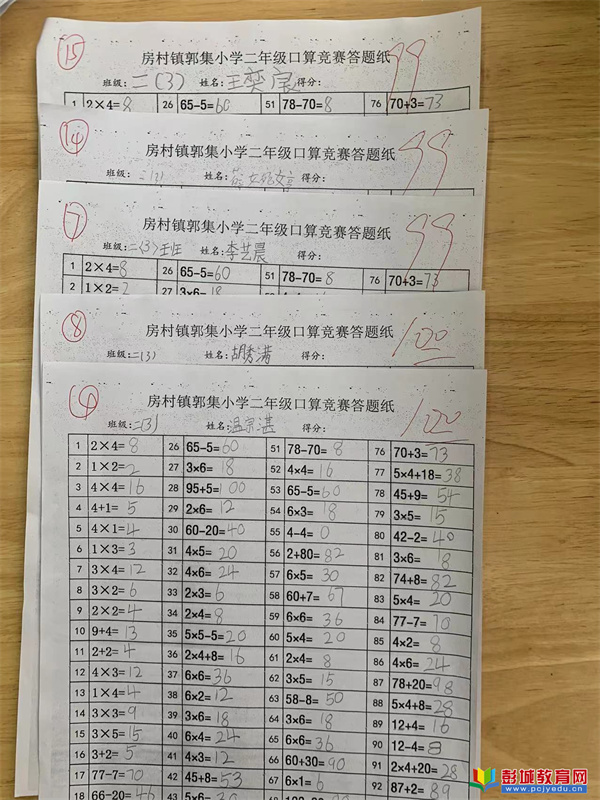 ⑮ 房村镇郭集小学二年级口算竞赛答题纸 99
班级: 二(3) 姓名: 得分:
1 2×4=8 26 65-5=60 51 78-70=8 76 70+3=73
⑭ 房村镇郭集小学二年级口算竞赛答题纸 99
班级: 二(3) 姓名: 得分:
⑦ 房村镇郭集小学二年级口算竞赛答题纸 99
班级: 二(3) 姓名: 李艺晨 得分:
1 2×4=8 26 65-5=60 51 78-70=8 76 70+3=73
2 1×2=2 27 3×6=18
⑧ 房村镇郭集小学二年级口算竞赛答题纸 100
班级: 二(3) 姓名: 胡秀满 得分:
④ 房村镇郭集小学二年级口算竞赛答题纸 100
班级: 二(3) 姓名: 温宗湛 得分:
1 2×4=8 26 65-5=60 51 78-70=8 76 70+3=73
2 1×2=2 27 3×6=18 52 4×4=16 77 5×4+18=38
3 4×4=16 28 95+5=100 53 65-5=60 78 45+9=54
4 4+1=5 29 2×6=12 54 6×3=18 79 3×5=15
5 4×1=4 30 60-20=40 55 4-4=0 80 42-2=40
6 1×3=3 31 4×5=20 56 2+80=82 81 3×6=18
7 3×4=12 32 4×6=24 57 6×5=30 82 74+8=82
8 3×2=6 33 2×3=6 58 60+7=67 83 5×4=20
9 2×2=4 34 2×4=8 59 6×6=36 84 77-7=70
10 9+4=13 35 5×5-5=20 60 5×4=20 85 4×2=8
11 2+2=4 36 2×4+8=16 61 2×4=8 86 4×6=24
12 4×3=12 37 6×6=36 62 3×5=15 87 78+20=98
13 1×4=4 38 6×2=12 63 58-8=50 88 5×4+8=28
14 3×3=9 39 3×6=18 64 3×6=18 89 12+4=16
15 3×5=15 40 6×4=24 65 6×6=36 90 12-4=8
16 3+2=5 41 4×3=12 66 60+30=90 91 2×4+20=28
17 77-7=70 42 45+8=53 67 6×1=6 92 87+2=89
18 66-20=46 43 5×6=30 68
彭城教育网
www.pcjyedu.cn